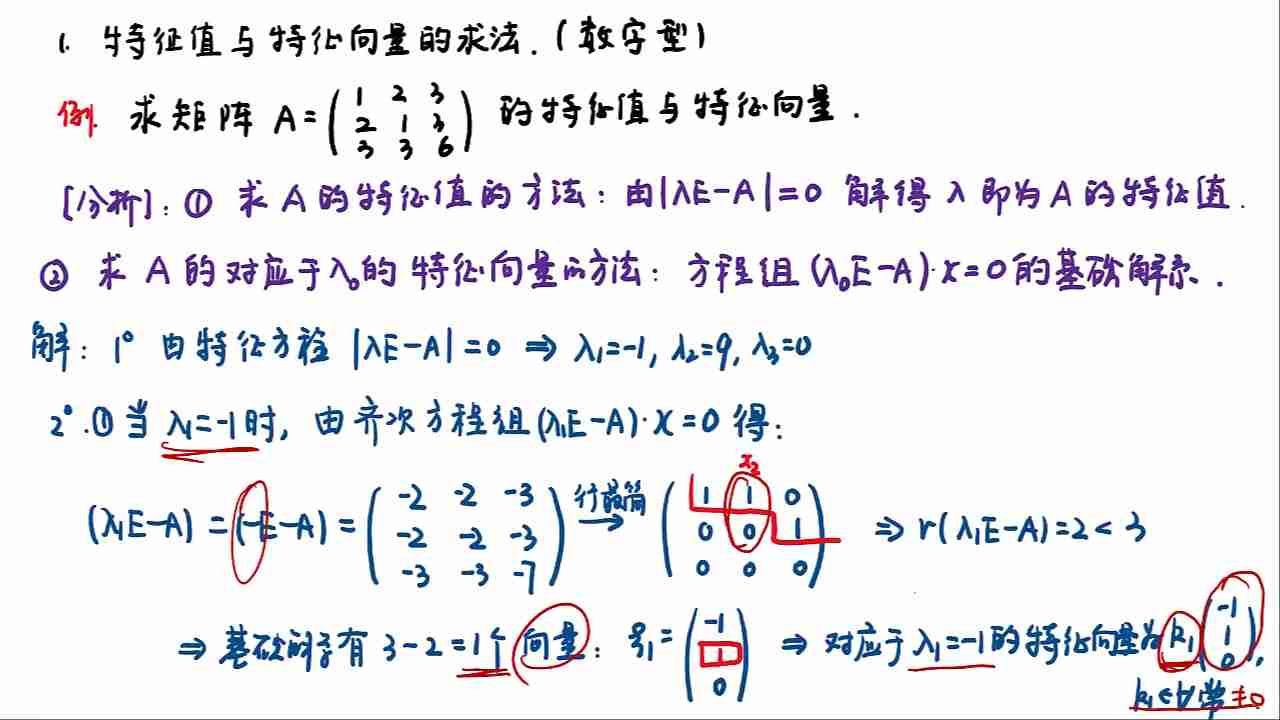 1. 特征值与特征向量的求法.(数字型)
例. 求矩阵 A=(1 2 3; 2 1 3; 3 3 6) 的特征值与特征向量.
[分析]:① 求 A 的特征值的方法:由|λE-A|=0 解得 λ 即为 A 的特征值.
② 求 A 的对应于λ₀的特征向量的方法:方程组(λ₀E-A)·x=0的基础解系.
解:1° 由特征方程 |λE-A|=0 ⇒ λ₁=-1, λ₂=9, λ₃=0
2°.①当 λ₁=-1时, 由齐次方程组(λ₁E-A)·x=0 得:
x₂
(λ₁E-A)=(-E-A)=(-2 -2 -3; -2 -2 -3; -3 -3 -7) 行最简→ (1 1 0; 0 0 1; 0 0 0) ⇒ r(λ₁E-A)=2<3
⇒ 基础解系有 3-2=1个向量:ξ₁=(-1; 1; 0) ⇒ 对应于λ₁=-1的特征向量为k₁(-1; 1; 0),
k₁ 常≠0